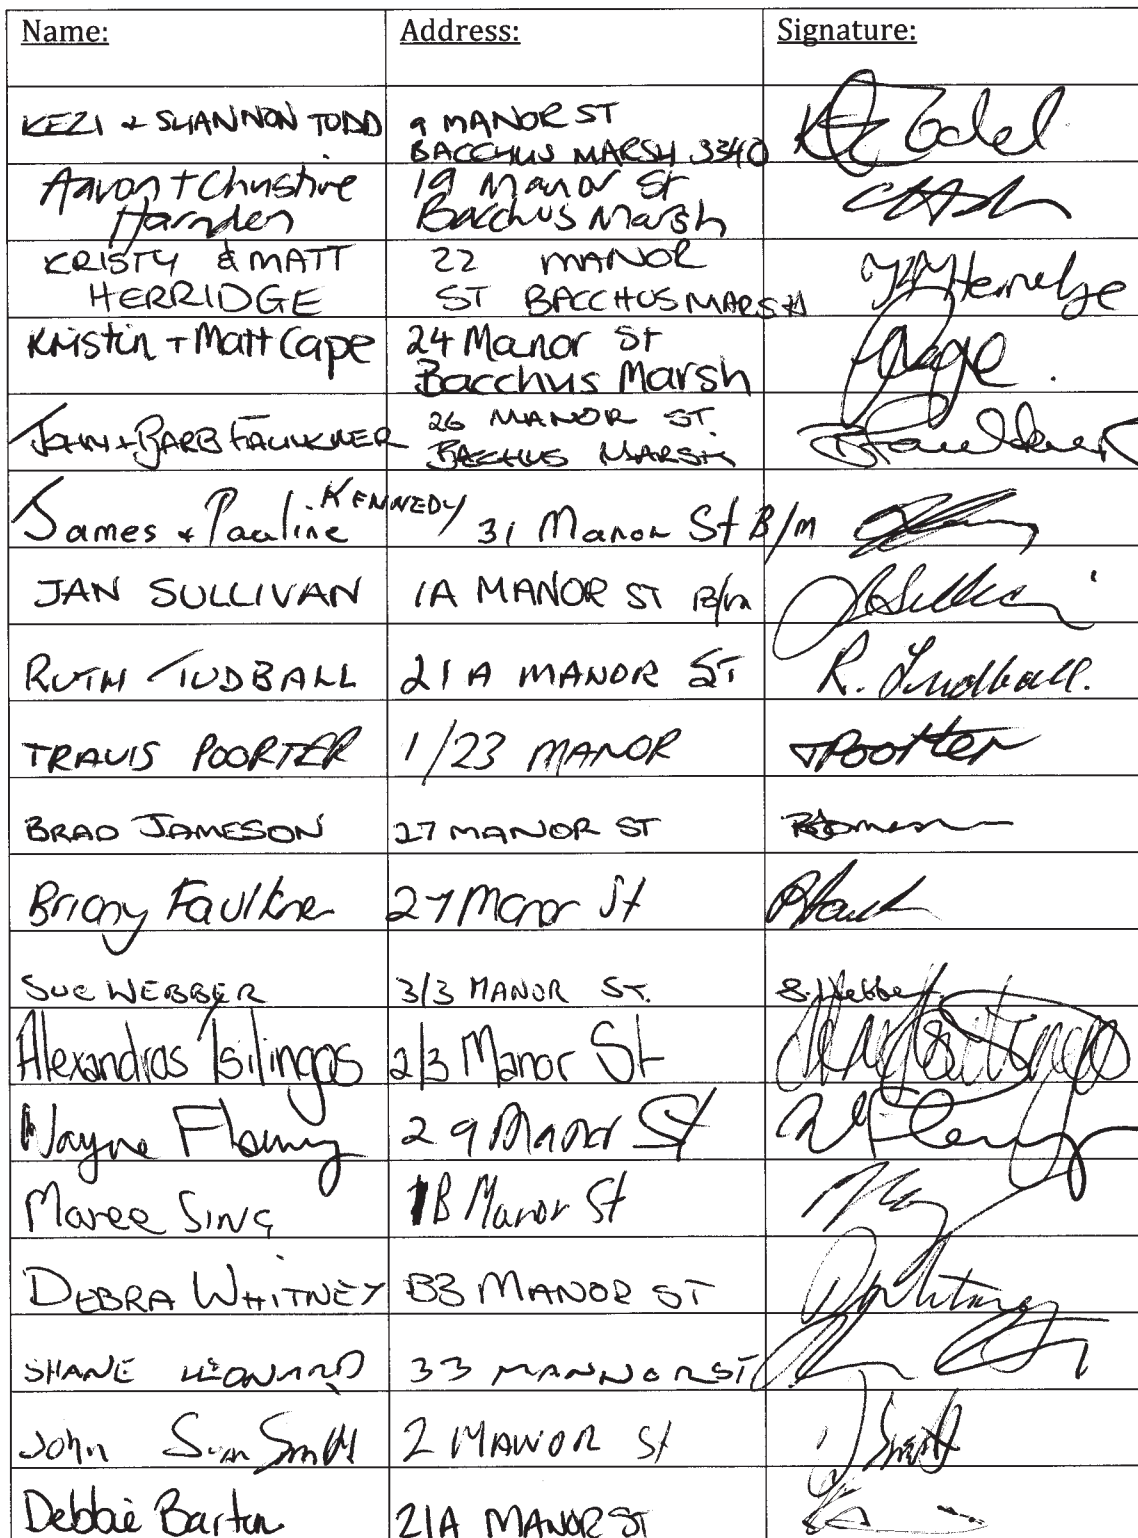 Name: Address: Signature:
KEZI + SHANNON TODD 9 MANOR ST
BACCHUS MARSH 3340
Aaron + Christine 19 Manor St
Harnden Bacchus Marsh
KRISTY & MATT 22 MANOR
HERRIDGE ST BACCHUS MARSH
Kristin + Matt Cape 24 Manor St
Bacchus Marsh
JOHN + BARB FAULKNER 26 MANOR ST.
BACCHUS MARSH
James + Pauline KENNEDY 31 Manor St B/m
JAN SULLIVAN 1A MANOR ST B/m
RUTH TUDBALL 21A MANOR ST R. Tudball.
TRAVIS POORTER 1/23 MANOR TPoorter
BRAD JAMESON 27 MANOR ST
Briony Faulkner 27 Manor St
SUE WEBBER 3/3 MANOR ST. S. Webber
Alexandros Tsilingos 2/3 Manor St
Wayne Fleming 29 Manor St
Maree SING 1B Manor St
DEBRA WHITNEY MANOR ST
SHANE LEONARD 33 MANNOR ST
John Smith 2 MANOR St
Debbie Barton 21A MANOR ST